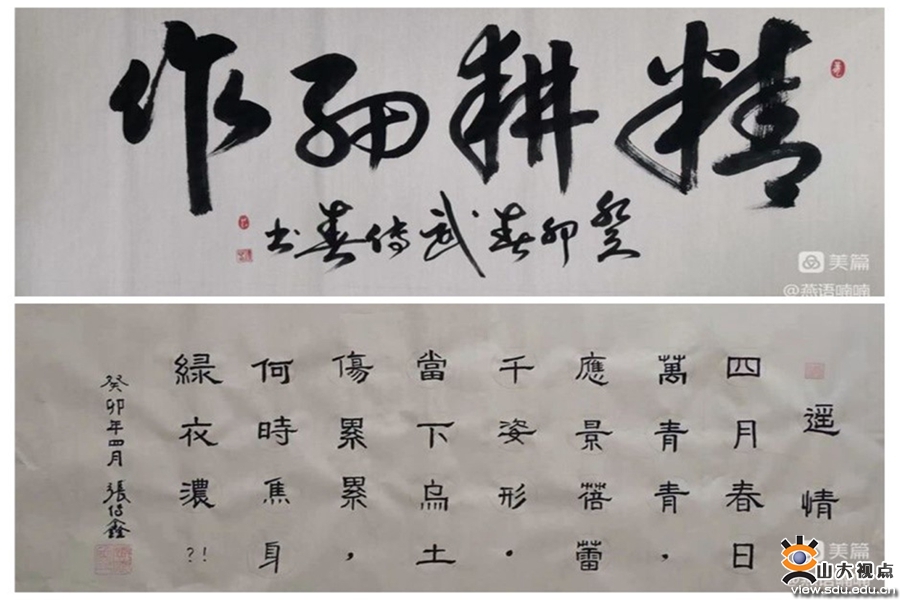 精耕細作
癸卯春武传春书
美篇
@燕语喃喃
遥情
四月春日
萬青青，
應景蓓蕾
千姿形．
當下烏土
傷累累，
何時焦身
緑衣濃?!
癸卯年四月 張传鑫
美篇
山大视点
view.sdu.edu.cn